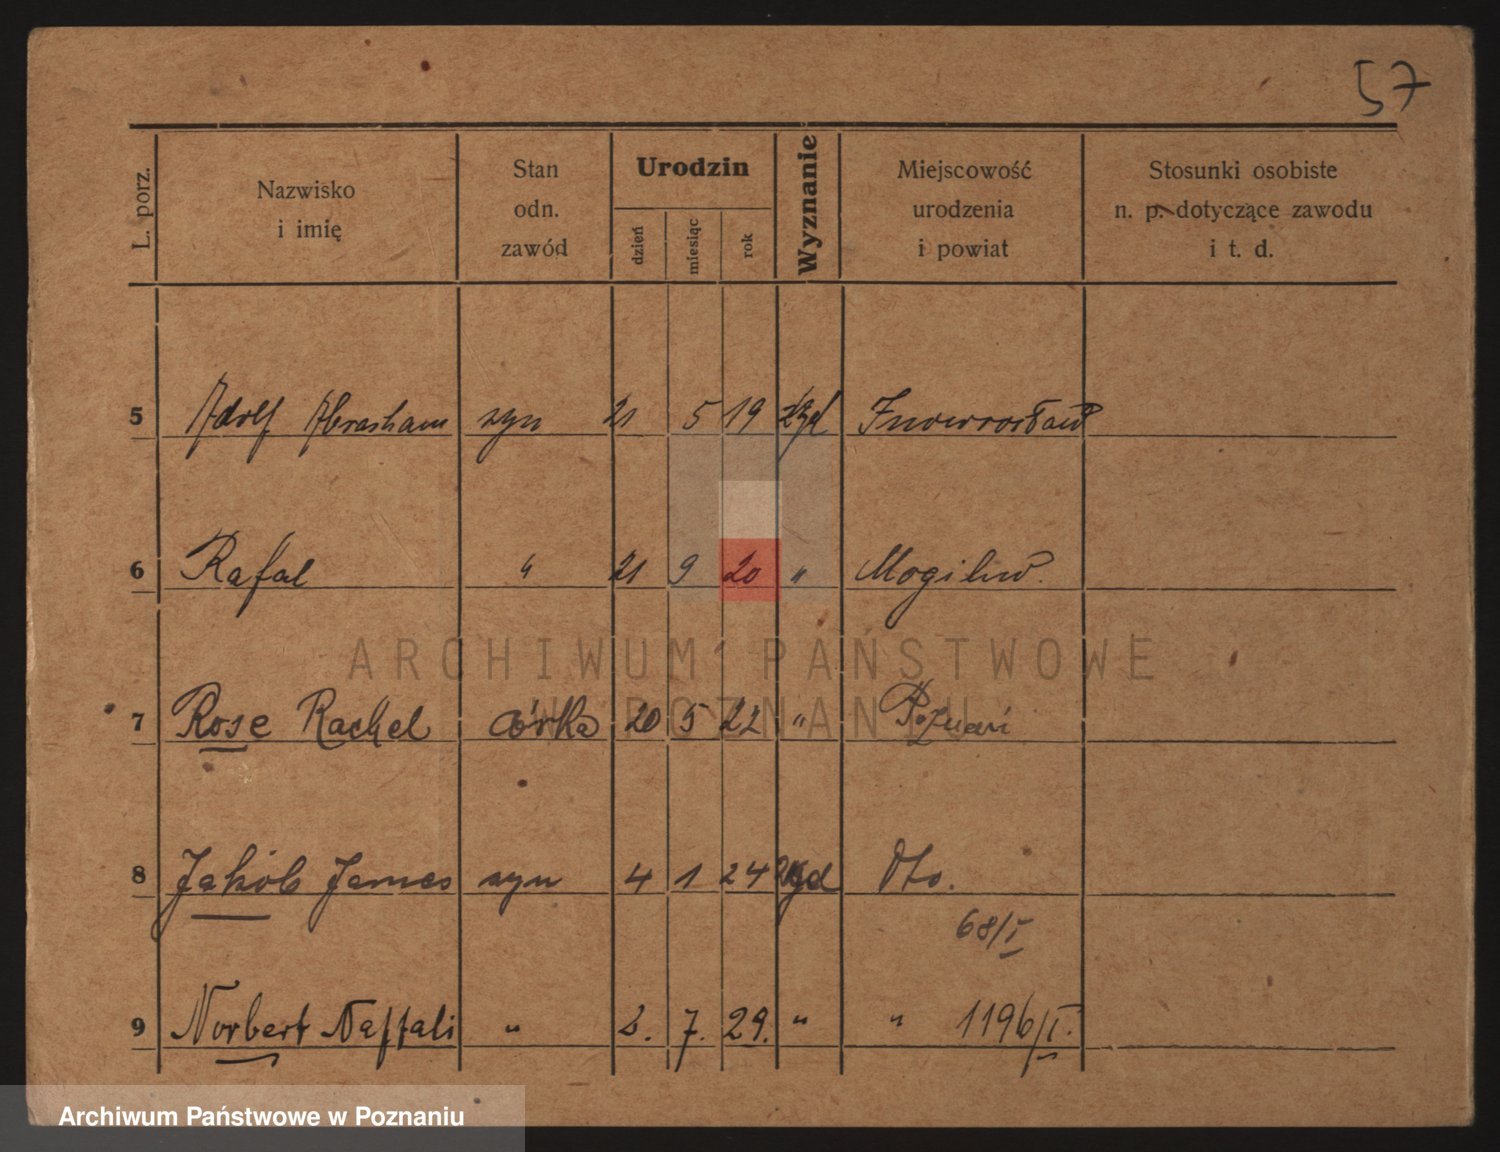 57
L. porz. Nazwisko i imię Stan odn. zawód Urodzin dzień miesiąc rok Wyznanie Miejscowość urodzenia i powiat Stosunki osobiste n. p. dotyczące zawodu i t. d.
5 Adolf Abraham syn 21 5 19 żyd Inowrocław
6 Rafał " 21 9 20 " Mogilno.
ARCHIWUM PAŃSTWOWE
W POZNANIU
7 Rose Rachel córka 20 5 22 " Poznań
8 Jakób James syn 4 1 24 żyd Dto.
68/I
9 Norbert Naftali " 2. 7. 29. " " 1196/I.
Archiwum Państwowe w Poznaniu